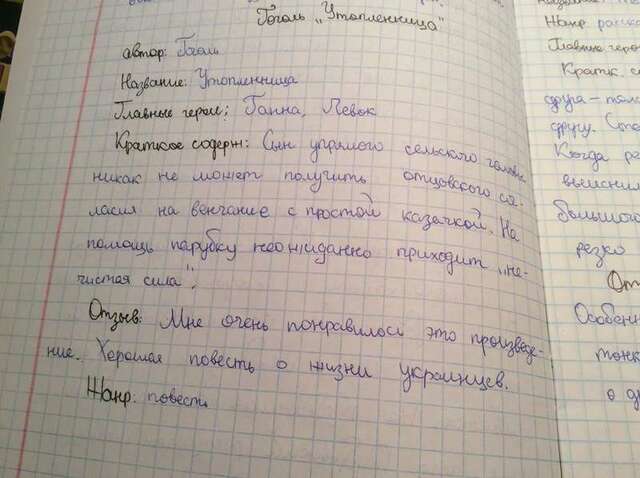 Гоголь „Утопленница"
автор: Гоголь
Название: Утопленница
Главные герои: Ганна, Левок
Краткое содерж: Сын упрямого сельского головы
никак не может получить отцовского со-
ласия на венчание с простой казачкой. На
помощь парубку неожиданно приходит „не-
чистая сила".
Отзыв: Мне очень понравилось это произведе-
ние. Хорошая повесть о жизни украинцев.
Жанр: повести
Жанр расска
Главные геро
Кратк. со
друга – 
другу. 
Когда ре
выяснил
большого
резко
От
Особенн
тонк
о др